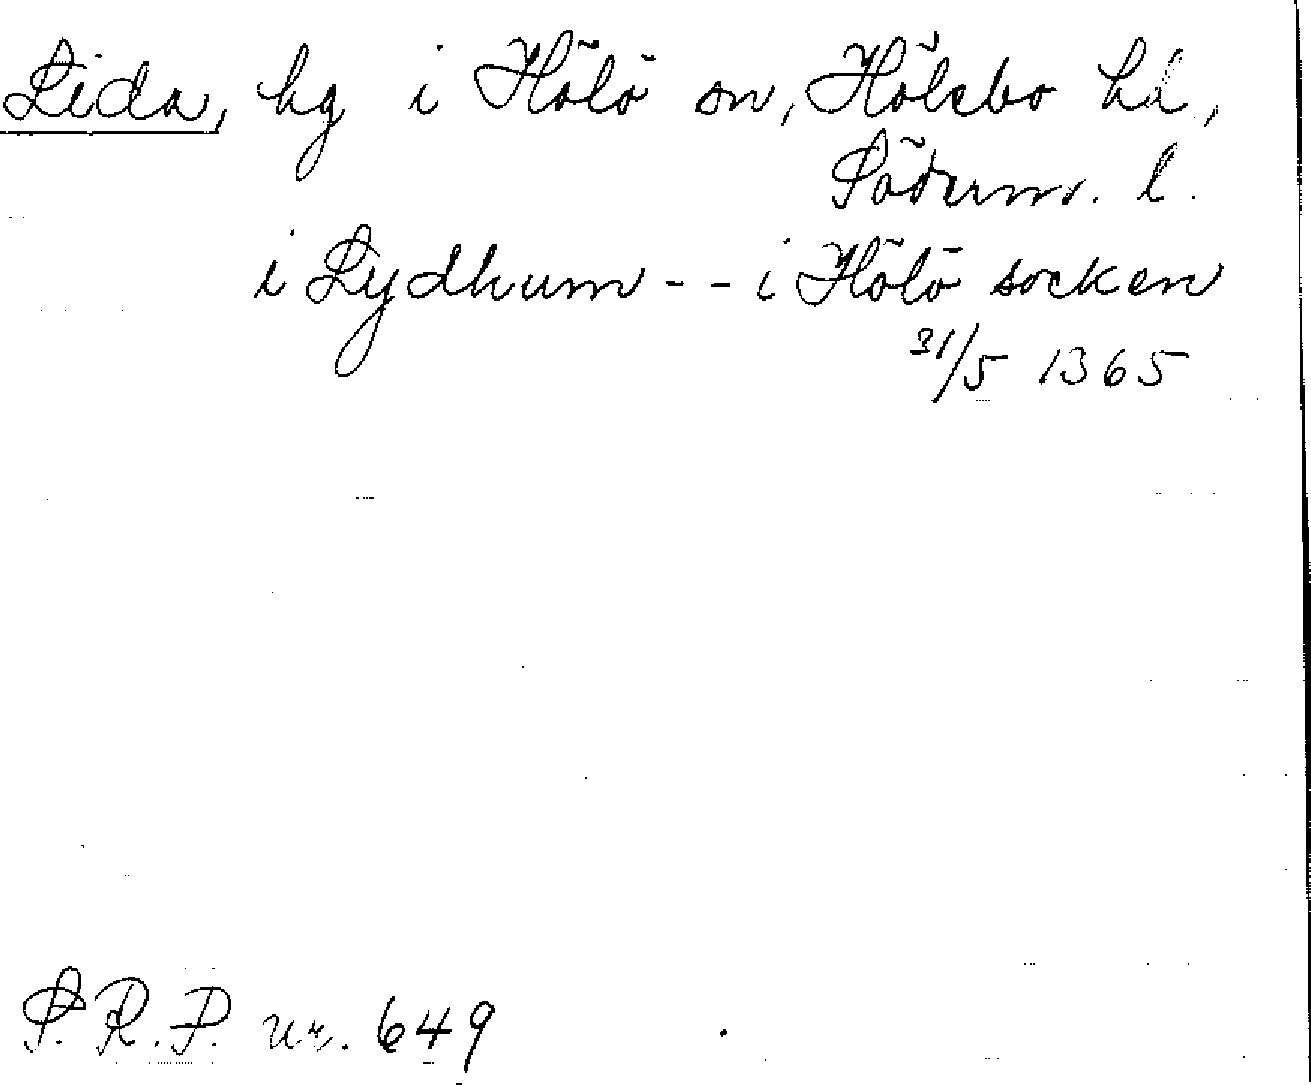 Lida, hg i Hölö sn, Hölebo hd,
Söderm. l.
i Lydhum -- i Hölö socken
31/5 1365
S.R.P. nr. 649